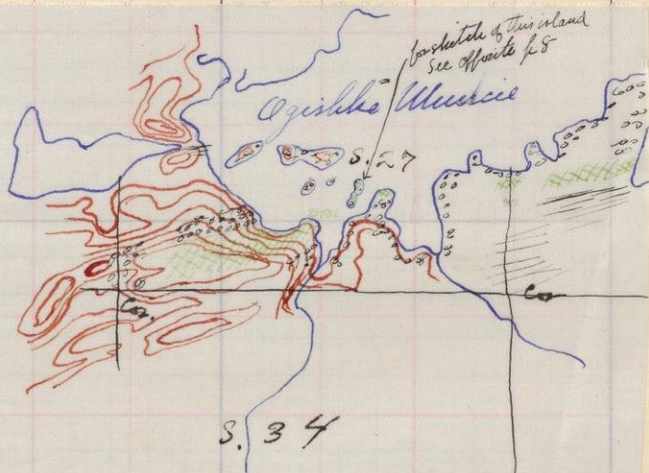 for sketch of this island
See opposite p 8
Ogishke Muncie
S. 27
Cor.
Co
S. 34